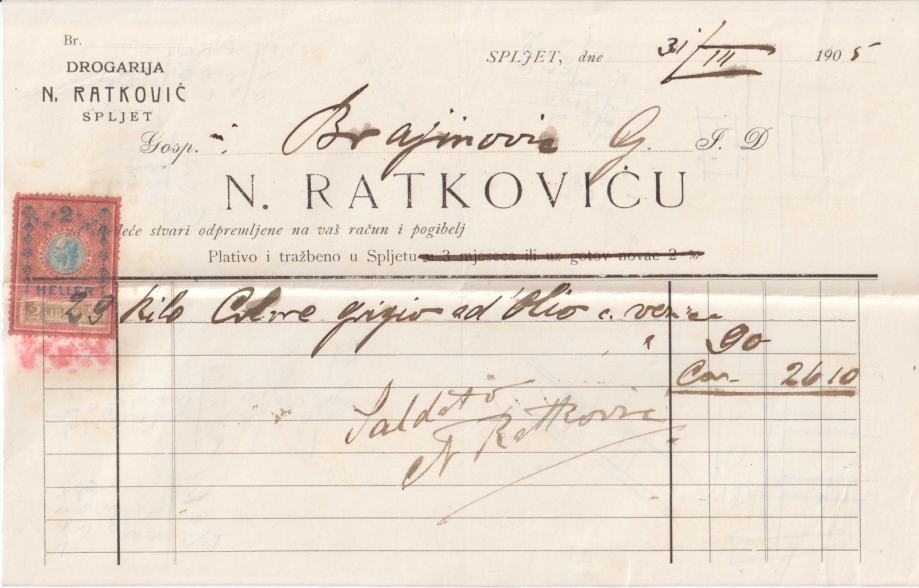 Br.
DROGARIJA
N. RATKOVIĆ
SPLJET
SPLJET, dne 31/III 1905
Gosp. Brajinovic G. I. D
N. RATKOVIĆU
deće stvari odpremljene na vaš račun i pogibelj
Plativo i tražbeno u Spljetu u 3 mjeseca ili uz gotov novac 2 %
2
HELLER
2
29 kilo grigio ad'Olio e.
" 90
Cor. 26 10
Saldato
N Ratkovic